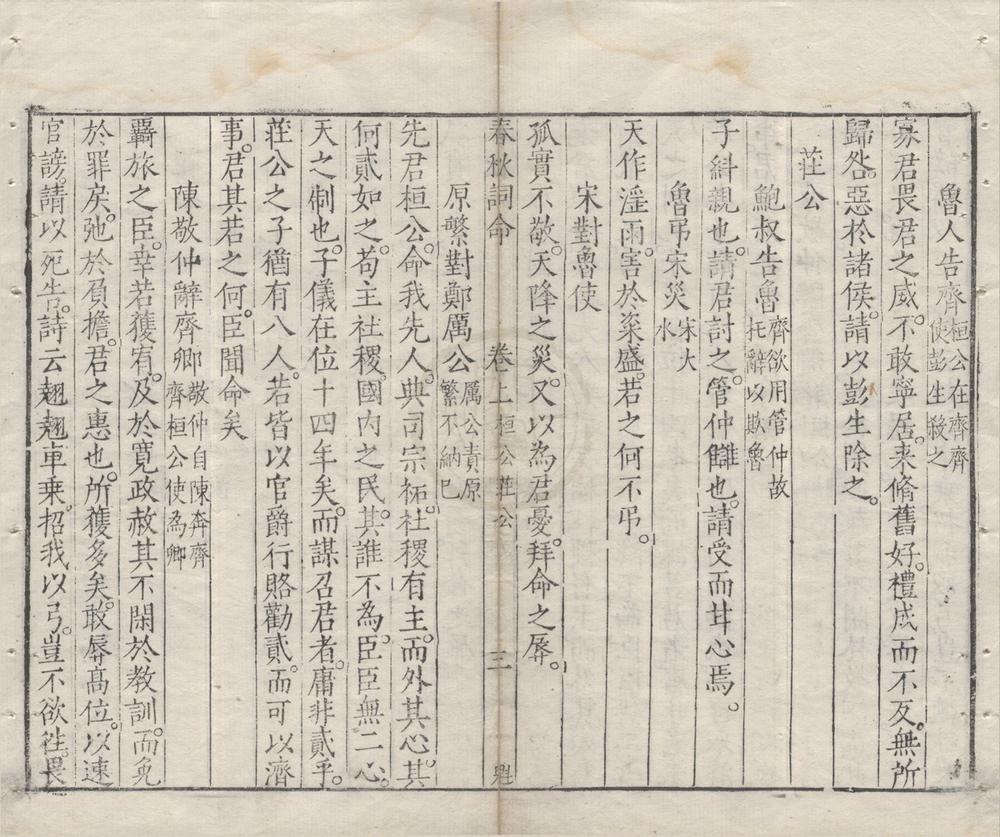 魯人告齊桓公在齊齊使彭生殺之
寡君畏君之威。不敢寧居。來脩舊好。禮成而不反。無所
歸咎。惡於諸侯。請以彭生除之。
莊公
鮑叔告魯齊欲用管仲故托辭以欺魯
子糾親也。請君討之。管仲讎也。請受而甘心焉。
魯弔宋災宋大水
天作淫雨。害於粢盛。若之何不弔。
宋對魯使
孤實不敬。天降之災。又以為君憂。拜命之辱。
春秋詞命 卷上桓公莊公 三
原繁對鄭厲公厲公責原繁不納已
先君桓公。命我先人。典司宗祏。社稷有主。而外其心。其
何貳如之。苟主社稷。國內之民。其誰不為臣。臣無二心。
天之制也。子儀在位十四年矣。而謀召君者。庸非貳乎。
莊公之子猶有八人。若皆以官爵行賂勸貳。而可以濟
事。君其若之何。臣聞命矣
陳敬仲辭齊卿敬仲自陳奔齊齊桓公使為卿
羇旅之臣。幸若獲宥。及於寬政赦其不閑於教訓。而免
於罪戾。弛於負擔。君之惠也。所獲多矣。敢辱高位。以速
官謗請以死告。詩云翹翹車乗。招我以弓。豈不欲往。畏